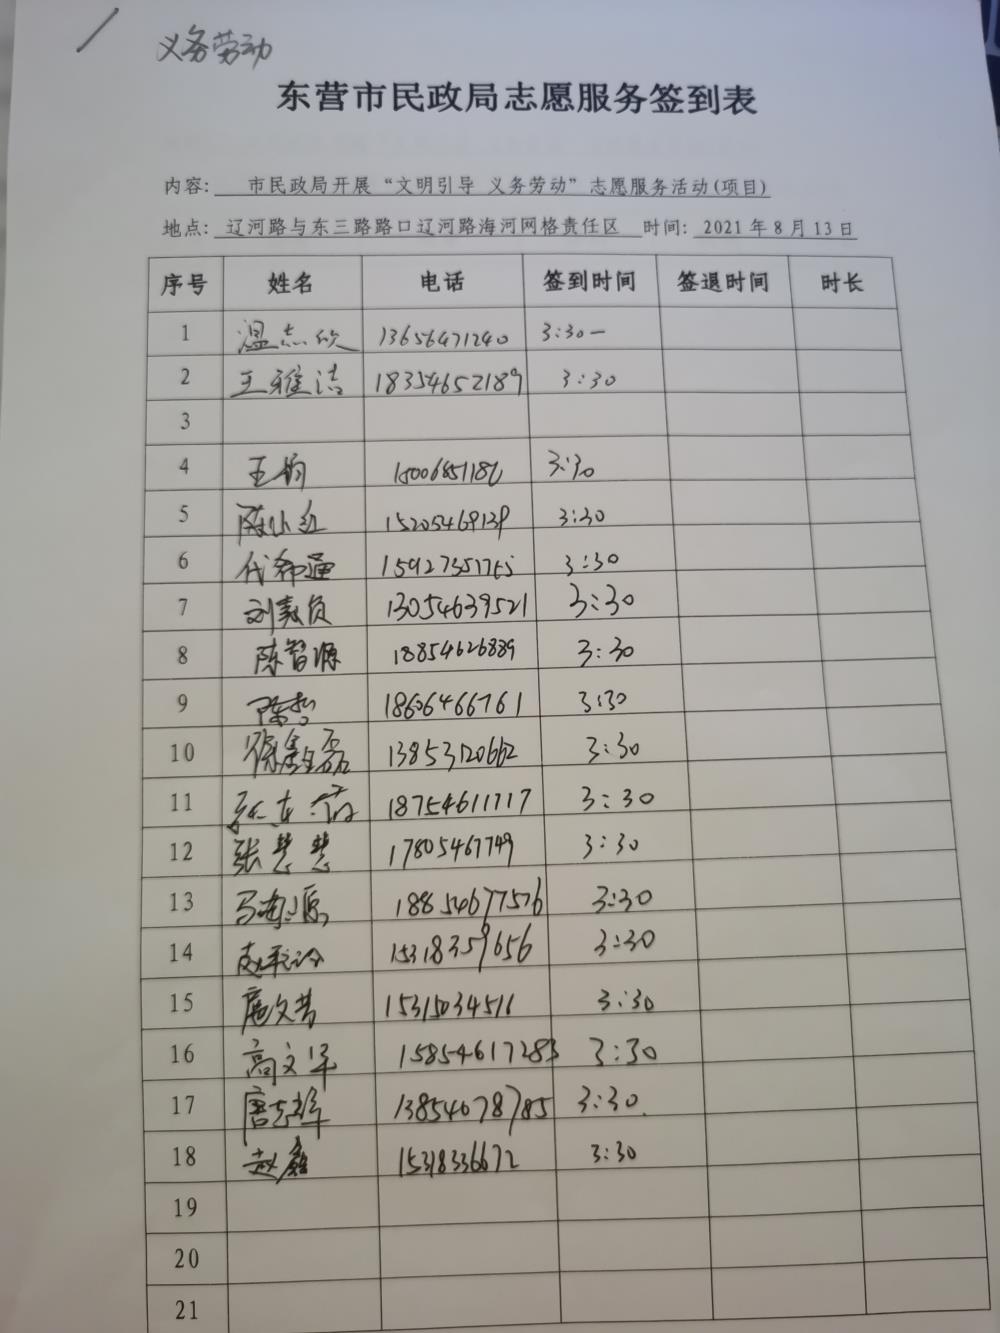 义务劳动
东营市民政局志愿服务签到表
内容: 市民政局开展“文明引导 义务劳动”志愿服务活动(项目)
地点: 辽河路与东三路路口辽河路海河网格责任区 时间: 2021年8月13日
序号 姓名 电话 签到时间 签退时间 时长
1 温志欣 13656471240 3:30一
2 王雅洁 18354652189 3:30
3
4 王钧 3:30
5 陈小红 15205469139 3:30
6 代希通 3:30
7 13054639521 3:30
8 陈智源 18854626889 3:30
9 陈哲 18606466761 3:30
10 徐鑫磊 13853120662 3:30
11 18754611717 3:30
12 张慧慧 17805467749 3:30
13 马海源 18854677576 3:30
14 15318359656 3:30
15 庞文芳 15315034516 3:30
16 高文华 15854617283 3:30
17 唐志峰 13854678785 3:30
18 赵鑫 15318336672 3:30
19
20
21